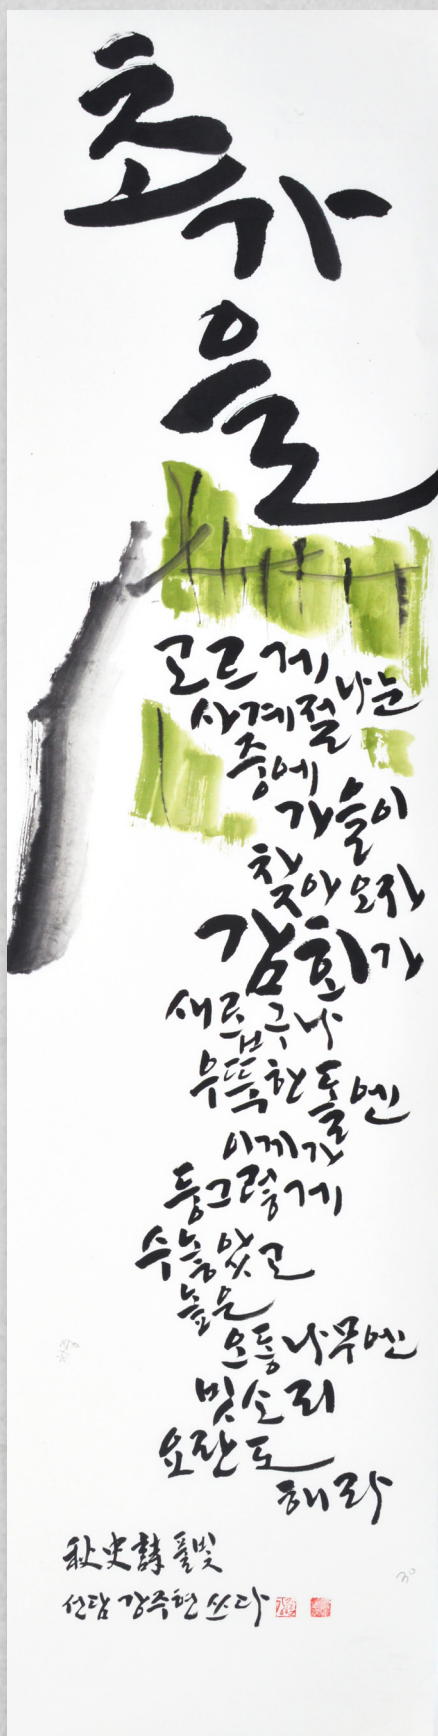 초가
을
고르게 나는
사계절
중에
가을이
찾아오자
감회가
새롭구나
우뚝한 돌엔
이게가
둥그렇게
수놓았고
높은
오동나무엔
빗소리
요란도
해라
秋史詩 풀빛
선담 강주현 쓰다